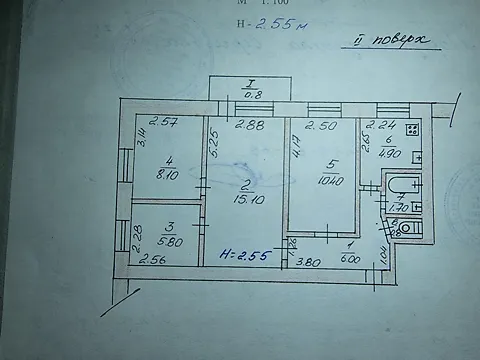 М 1: 100
H - 2.55 м
II поверх
I
0.8
2.57
2.88
2.50
2.24
3.14
5.25
4.17
2.65
6
4.90
4
8.10
2
15.10
5
10.40
7
1.70
3
5.80
2.28
2.56
H = 2.55
3.80
1
6.00
1.04